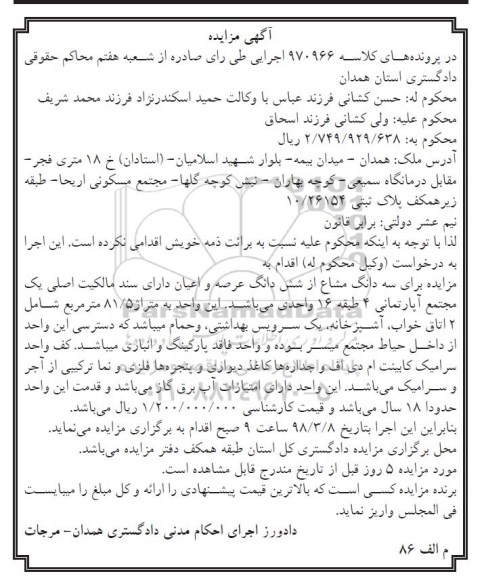 آگهی مزایده
در پرونده‌های کلاسه ۹۷۰۹۶۶ اجرایی طی رای صادره از شعبه هفتم محاکم حقوقی
دادگستری استان همدان
محکوم له: حسن کشانی فرزند عباس با وکالت حمید اسکندرنژاد فرزند محمد شریف
محکوم علیه: ولی کشانی فرزند اسحاق
محکوم به: ۲/۷۴۹/۹۲۹/۶۳۸ ریال
آدرس ملک: همدان - میدان بیمه- بلوار شهید اسلامیان- (استادان) خ ۱۸ متری فجر-
مقابل درمانگاه سمیعی- کوچه بهاران - نبش کوچه گلها- مجتمع مسکونی اریحا- طبقه
زیرهمکف پلاک ثبتی ۱۰/۲۶۱۵۴
نیم عشر دولتی: برابر قانون
لذا با توجه به اینکه محکوم علیه نسبت به برائت ذمه خویش اقدامی نکرده است. این اجرا
به درخواست (وکیل محکوم له) اقدام به
مزایده برای سه دانگ مشاع از شش دانگ عرصه و اعیان دارای سند مالکیت اصلی یک
مجتمع آپارتمانی ۴ طبقه ۱۶ واحدی می‌باشد. این واحد به متراژ ۸۱/۵ مترمربع شامل
۲ اتاق خواب، آشپزخانه، یک سرویس بهداشتی، وحمام میباشد که دسترسی این واحد
از داخل حیاط مجتمع میسر بوده و واحد فاقد پارکینگ و انباری میباشد. کف واحد
سرامیک کابینت ام دی اف واجداره‌ها کاغذ دیواری و پنجره‌ها فلزی و نما ترکیبی از آجر
و سرامیک می‌باشد. این واحد دارای امتیازات آب برق گاز می‌باشد و قدمت این واحد
حدودا ۱۸ سال می‌باشد و قیمت کارشناسی ۱/۲۰۰/۰۰۰/۰۰۰ ریال می‌باشد.
بنابراین این اجرا بتاریخ ۹۸/۳/۸ ساعت ۹ صبح اقدام به برگزاری مزایده می‌نماید.
محل برگزاری مزایده دادگستری کل استان طبقه همکف دفتر مزایده می‌باشد.
مورد مزایده ۵ روز قبل از تاریخ مندرج قابل مشاهده است.
برنده مزایده کسی است که بالاترین قیمت پیشنهادی را ارائه و کل مبلغ را میبایست
فی المجلس واریز نماید.
دادورز اجرای احکام مدنی دادگستری همدان- مرجات
م الف ۸۶